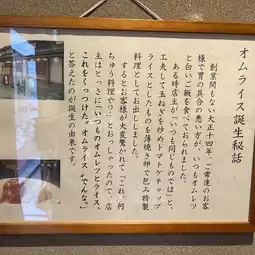 オムライス誕生秘話
創業間もない大正十四年、ご常連のお客
様で胃の具合の悪い方が、いつもオムレツ
と白いご飯を食べておられました。
ある時店主が「いつも同じものでは」と、
工夫して玉ねぎを炒めトマトケチャップ
ライスとしたものを薄焼き卵で包み特製
料理としてお出ししました。
するとお客様が大変驚かれて「これ、何
ちゅう料理やっ」とおっしゃったので、店
主はとっさに「いつものオムレツとライス、
これをくっつけた〝オムライス〟でんな。」
と答えたのが誕生の由来です。